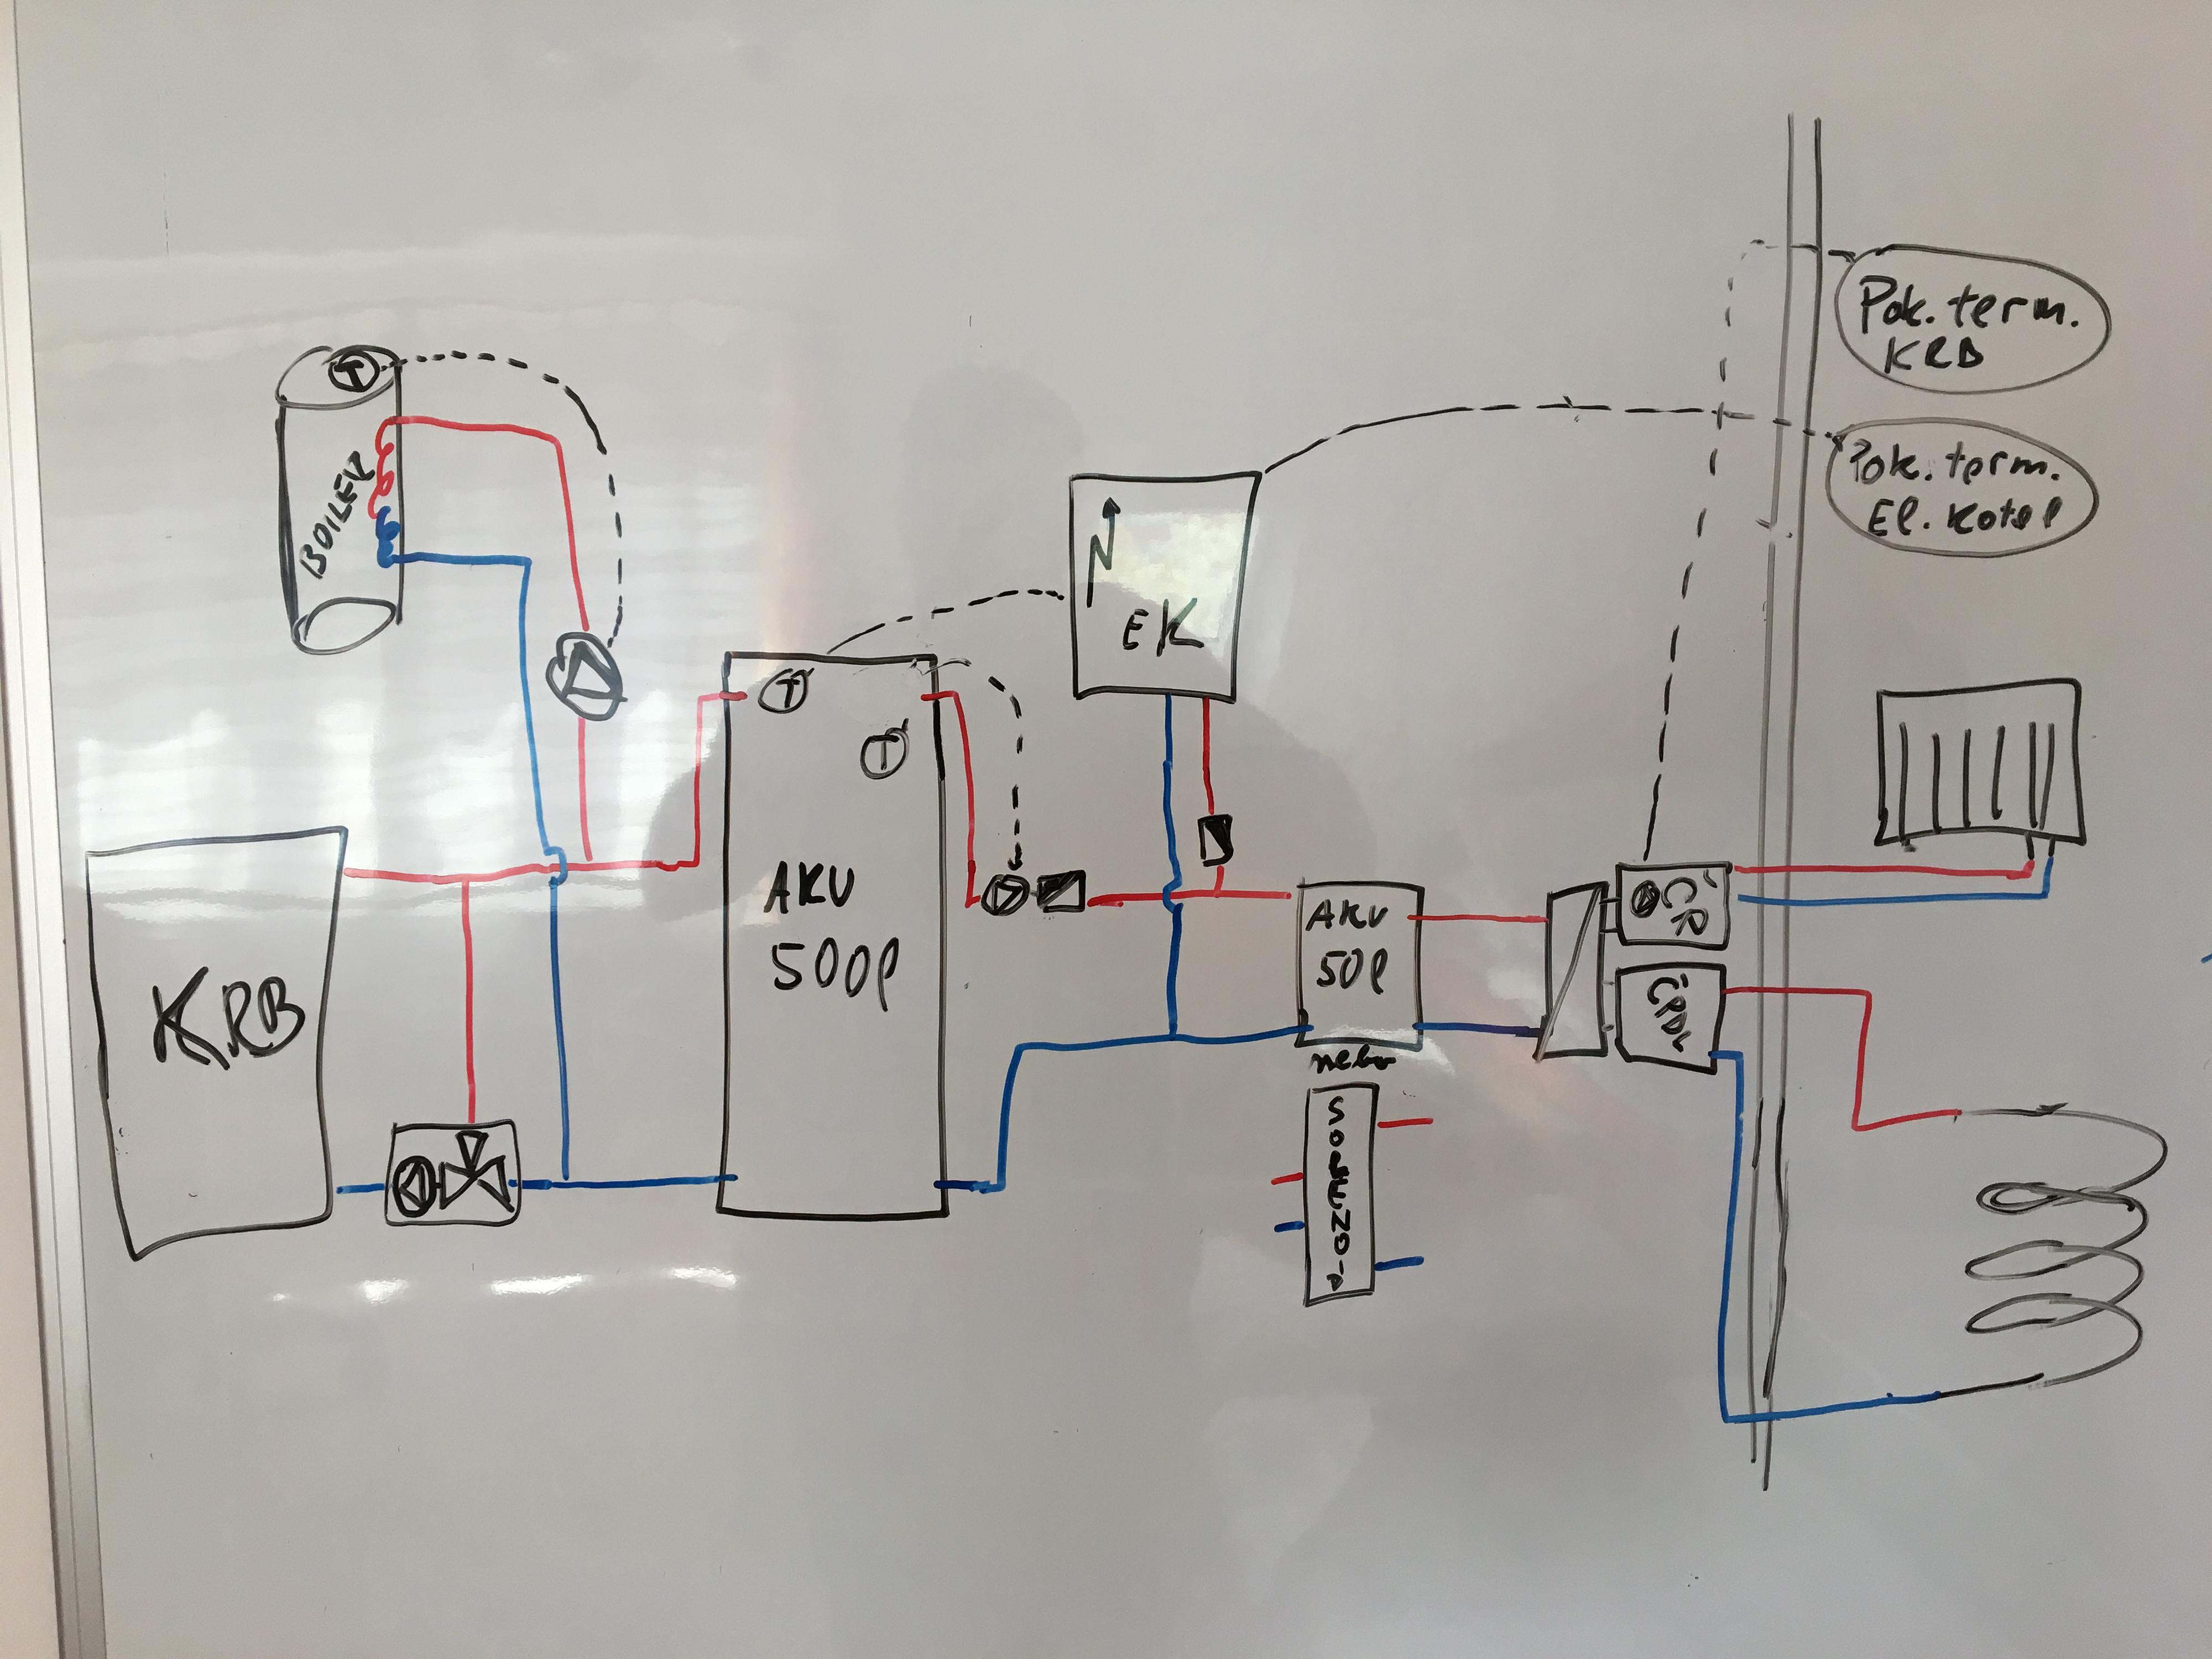 Pok. term.
KRB
Pok. term.
El. Kotel
T
BOILER
N
EK
T
T
AKU
500l
KRB
AKU
50l
nebo
ČR
ČPDL